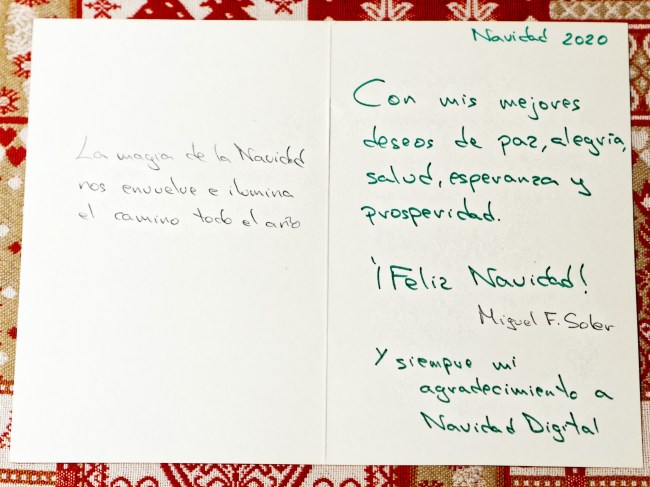 La magia de la Navidad
nos envuelve e ilumina
el camino todo el año
Navidad 2020
Con mis mejores
deseos de paz, alegría,
salud, esperanza y
prosperidad.
¡Feliz Navidad!
Miguel F. Soler
Y siempre mi
agradecimiento a
Navidad Digital